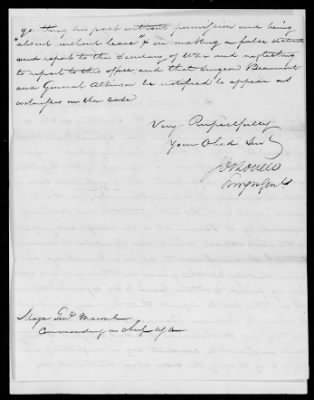 his post without permission and being
"absent without leave" & in making a false statement
and report to the Secretary of War and neglecting
to report to this office, and that Surgeon Beaumont
and General Atkinson be notified to appear as
witnesses in the case
Very Respectfully
Your Obed Servt
Jos Lovell
Surgn Genl
Major Genl Macomb
Commanding in Chief